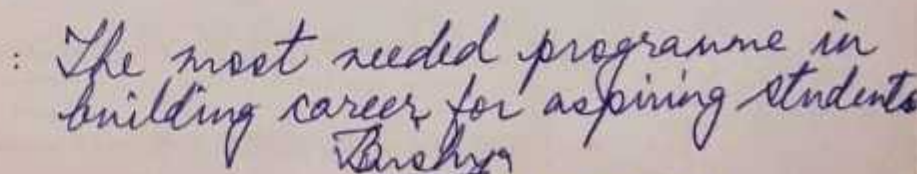 : The most needed programme in
building career for aspiring students